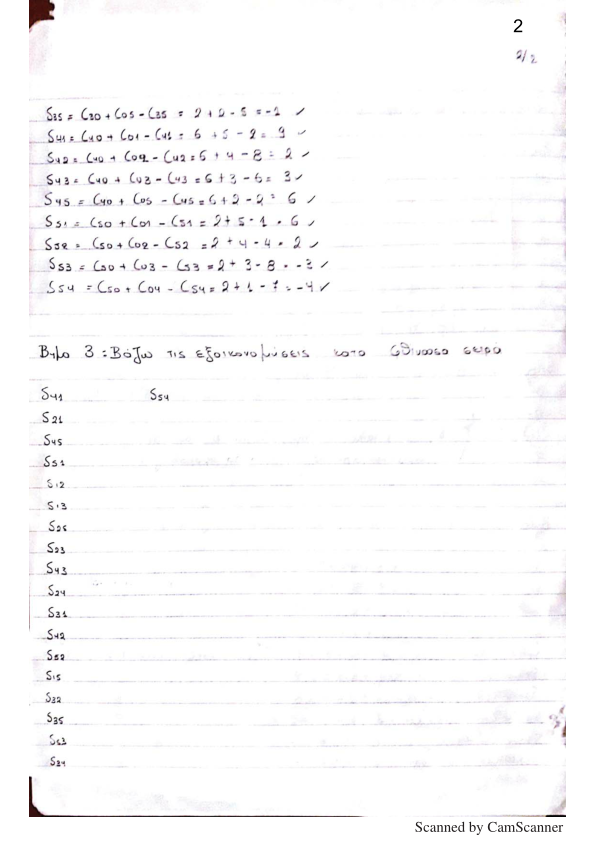 2
2/2
S35 = C30 + C05 - C35 = 2 + 2 - 5 = -1 ✓
S41 = C40 + C01 - C41 = 6 + 5 - 2 = 9 ✓
S42 = C40 + C02 - C42 = 6 + 4 - 8 = 2 ✓
S43 = C40 + C03 - C43 = 6 + 3 - 6 = 3 ✓
S45 = C40 + C05 - C45 = 6 + 2 - 2 = 6 ✓
S51 = C50 + C01 - C51 = 2 + 5 - 1 = 6 ✓
S52 = C50 + C02 - C52 = 2 + 4 - 4 = 2 ✓
S53 = C50 + C03 - C53 = 2 + 3 - 8 = -3 ✓
S54 = C50 + C04 - C54 = 2 + 1 - 7 = -4 ✓
Βημα 3 : Βάζω τις εξοικονομήσεις κατα φθινουσα σειρά
S41 S54
S21
S45
S51
S12
S13
S25
S23
S43
S24
S31
S42
S52
S15
S32
S35
S53
S34
Scanned by CamScanner